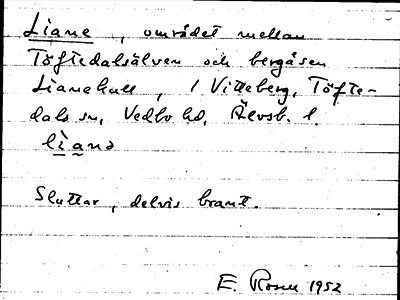 Liane, området mellan
Töftedalsälven och bergåsen
Lianekull, i Vitteberg, Töfte-
dals sn, Vedbo hd, Älvsb. l.
lìanə
Sluttar, delvis brant.
E. Rosell 1952